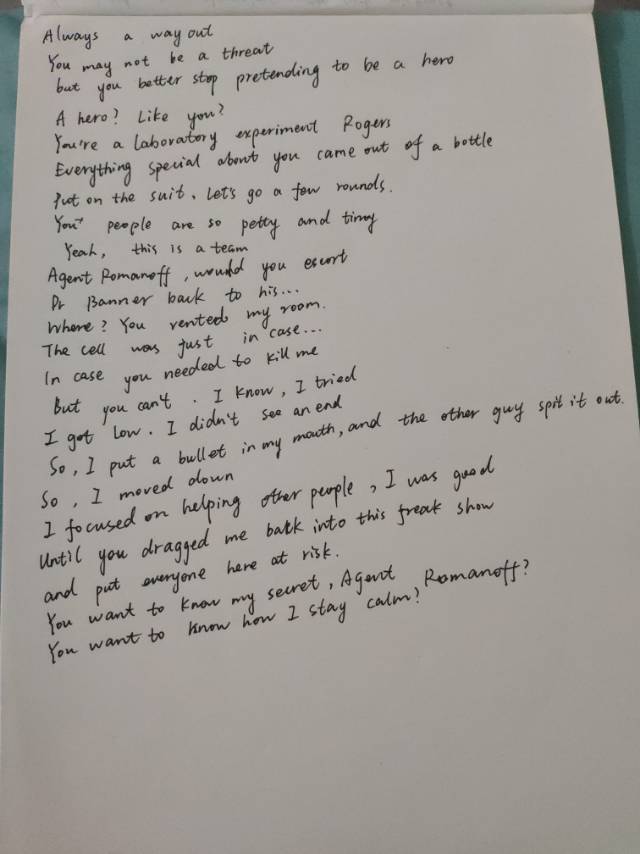 Always a way out
You may not be a threat
but you better stop pretending to be a hero
A hero? Like you?
You're a laboratory experiment Rogers
Everything special about you came out of a bottle
Put on the suit. Let's go a few rounds.
You people are so petty and tiny
Yeah, this is a team
Agent Romanoff, would you escort
Dr Banner back to his...
Where? You rented my room.
The cell was just in case...
In case you needed to kill me
But you can't. I know, I tried
I got low. I didn't see an end
So, I put a bullet in my mouth, and the other guy spit it out.
So, I moved down
I focused on helping other people, I was good
Until you dragged me back into this freak show
and put everyone here at risk.
You want to know my secret, Agent Romanoff?
You want to know how I stay calm?